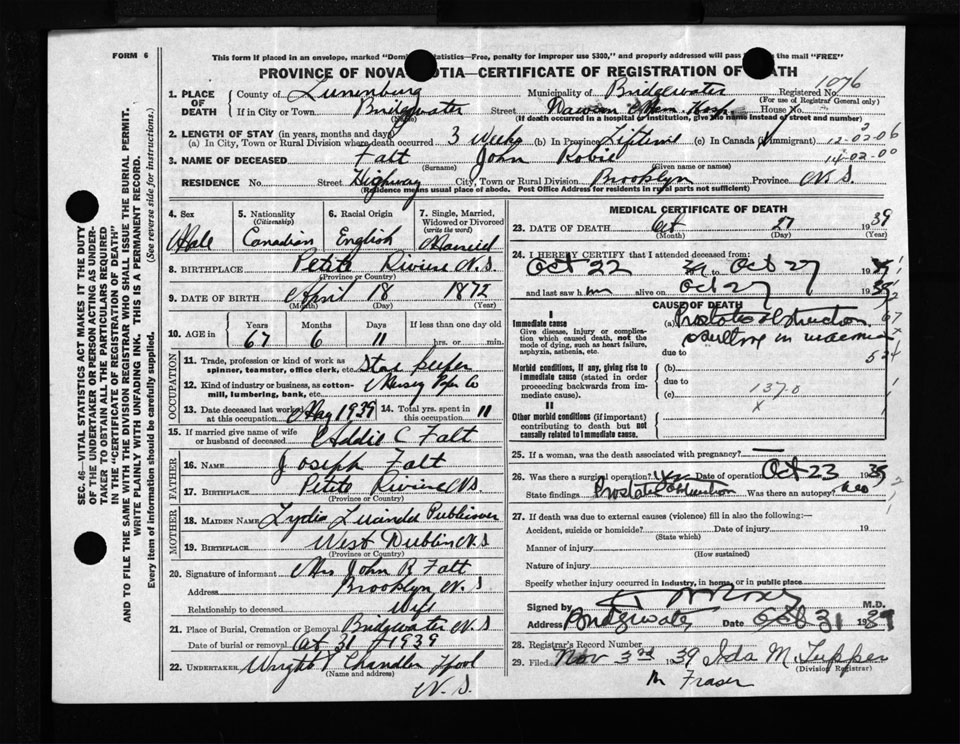 FORM 6
This form if placed in an envelope, marked "Dom Statistics—Free, penalty for improper use $300," and properly addressed will pass the mail "FREE"
PROVINCE OF NOVA OTIA—CERTIFICATE OF REGISTRATION OF DEATH
1076
1. PLACE OF DEATH County of Lunenburg Municipality of Bridgewater Registered No.
(For use of Registrar General only)
If in City or Town Bridgewater Street Dawson Mem. Hosp. House No.
(Name) (If death occurred in a hospital or institution, give the name instead of street and number)
2. LENGTH OF STAY (in years, months and days)
(a) In City, Town or Rural Division where death occurred 3 Weeks (b) In Province Lifetime (c) In Canada (if immigrant) 12-02-06
3. NAME OF DECEASED Falt John Robie 14-02-00
(Surname) (Given name or names)
RESIDENCE No. Street Highway City, Town or Rural Division Brooklyn Province N.S.
(Residence means usual place of abode. Post Office Address for residents in rural parts not sufficient)
4. Sex 5. Nationality (Citizenship) 6. Racial Origin 7. Single, Married, Widowed or Divorced (write the word)
Male Canadian English Married
8. BIRTHPLACE Petite Riviere N.S.
(Province or Country)
9. DATE OF BIRTH April 18 1872
(Month) (Day) (Year)
10. AGE in Years Months Days If less than one day old
67 6 11 hrs. or min.
OCCUPATION
11. Trade, profession or kind of work as spinner, teamster, office clerk, etc.
12. Kind of industry or business, as cotton-mill, lumbering, bank, etc. Mersey Paper Co
13. Date deceased last worked at this occupation May 1939 14. Total yrs. spent in this occupation 11
15. If married give name of wife or husband of deceased Addie C Falt
FATHER
16. NAME Joseph Falt
17. BIRTHPLACE Petite Riviere N.S.
(Province or Country)
MOTHER
18. MAIDEN NAME Lydia Lucinda Publicover
19. BIRTHPLACE West Dublin N.S
(Province or Country)
20. Signature of informant Mrs John R Falt
Address Brooklyn N.S
Relationship to deceased Wife
21. Place of Burial, Cremation or Removal Bridgwater N S
Date of burial or removal Oct 31 1939
22. UNDERTAKER Wright Chandler Lpool
(Name and address)
N.S.
MEDICAL CERTIFICATE OF DEATH
23. DATE OF DEATH Oct 27 1939
(Month) (Day) (Year)
24. I HEREBY CERTIFY that I attended deceased from:
Oct 22 39 to Oct 27 1939
and last saw him alive on Oct 27 1939
CAUSE OF DEATH
I
Immediate cause (a) Prostatic obstruction
Give disease, injury or complication which caused death, not the mode of dying, such as heart failure, asphyxia, asthenia, etc.
resulting in uraemia
due to
Morbid conditions, if any, giving rise to immediate cause (stated in order proceeding backwards from immediate cause). (b)
due to
(c) 137.0
x
II
Other morbid conditions (if important) contributing to death but not causally related to immediate cause.
25. If a woman, was the death associated with pregnancy?
26. Was there a surgical operation? Yes Date of operation Oct 23 1939
State findings Prostatic obstruction Was there an autopsy? no
27. If death was due to external causes (violence) fill in also the following:—
Accident, suicide or homicide? Date of injury 19
(State which)
Manner of injury
(How sustained)
Nature of injury
Specify whether injury occurred in industry, in home, or in public place
Signed by M.D.
Address Bridgewater Date Oct 31 1939
28. Registrar's Record Number
29. Filed Nov 3rd 1939 Ida M. Tupper
(Division Registrar)
M Fraser
SEC. 46—VITAL STATISTICS ACT MAKES IT THE DUTY
OF THE UNDERTAKER OR PERSON ACTING AS UNDER-
TAKER TO OBTAIN ALL THE PARTICULARS REQUIRED
IN THE "CERTIFICATE OF REGISTRATION OF DEATH"
AND TO FILE THE SAME WITH THE DIVISION REGISTRAR WHO SHALL ISSUE THE BURIAL PERMIT.
WRITE PLAINLY WITH UNFADING INK. THIS IS A PERMANENT RECORD.
Every item of information should be carefully supplied. (See reverse side for instructions.)